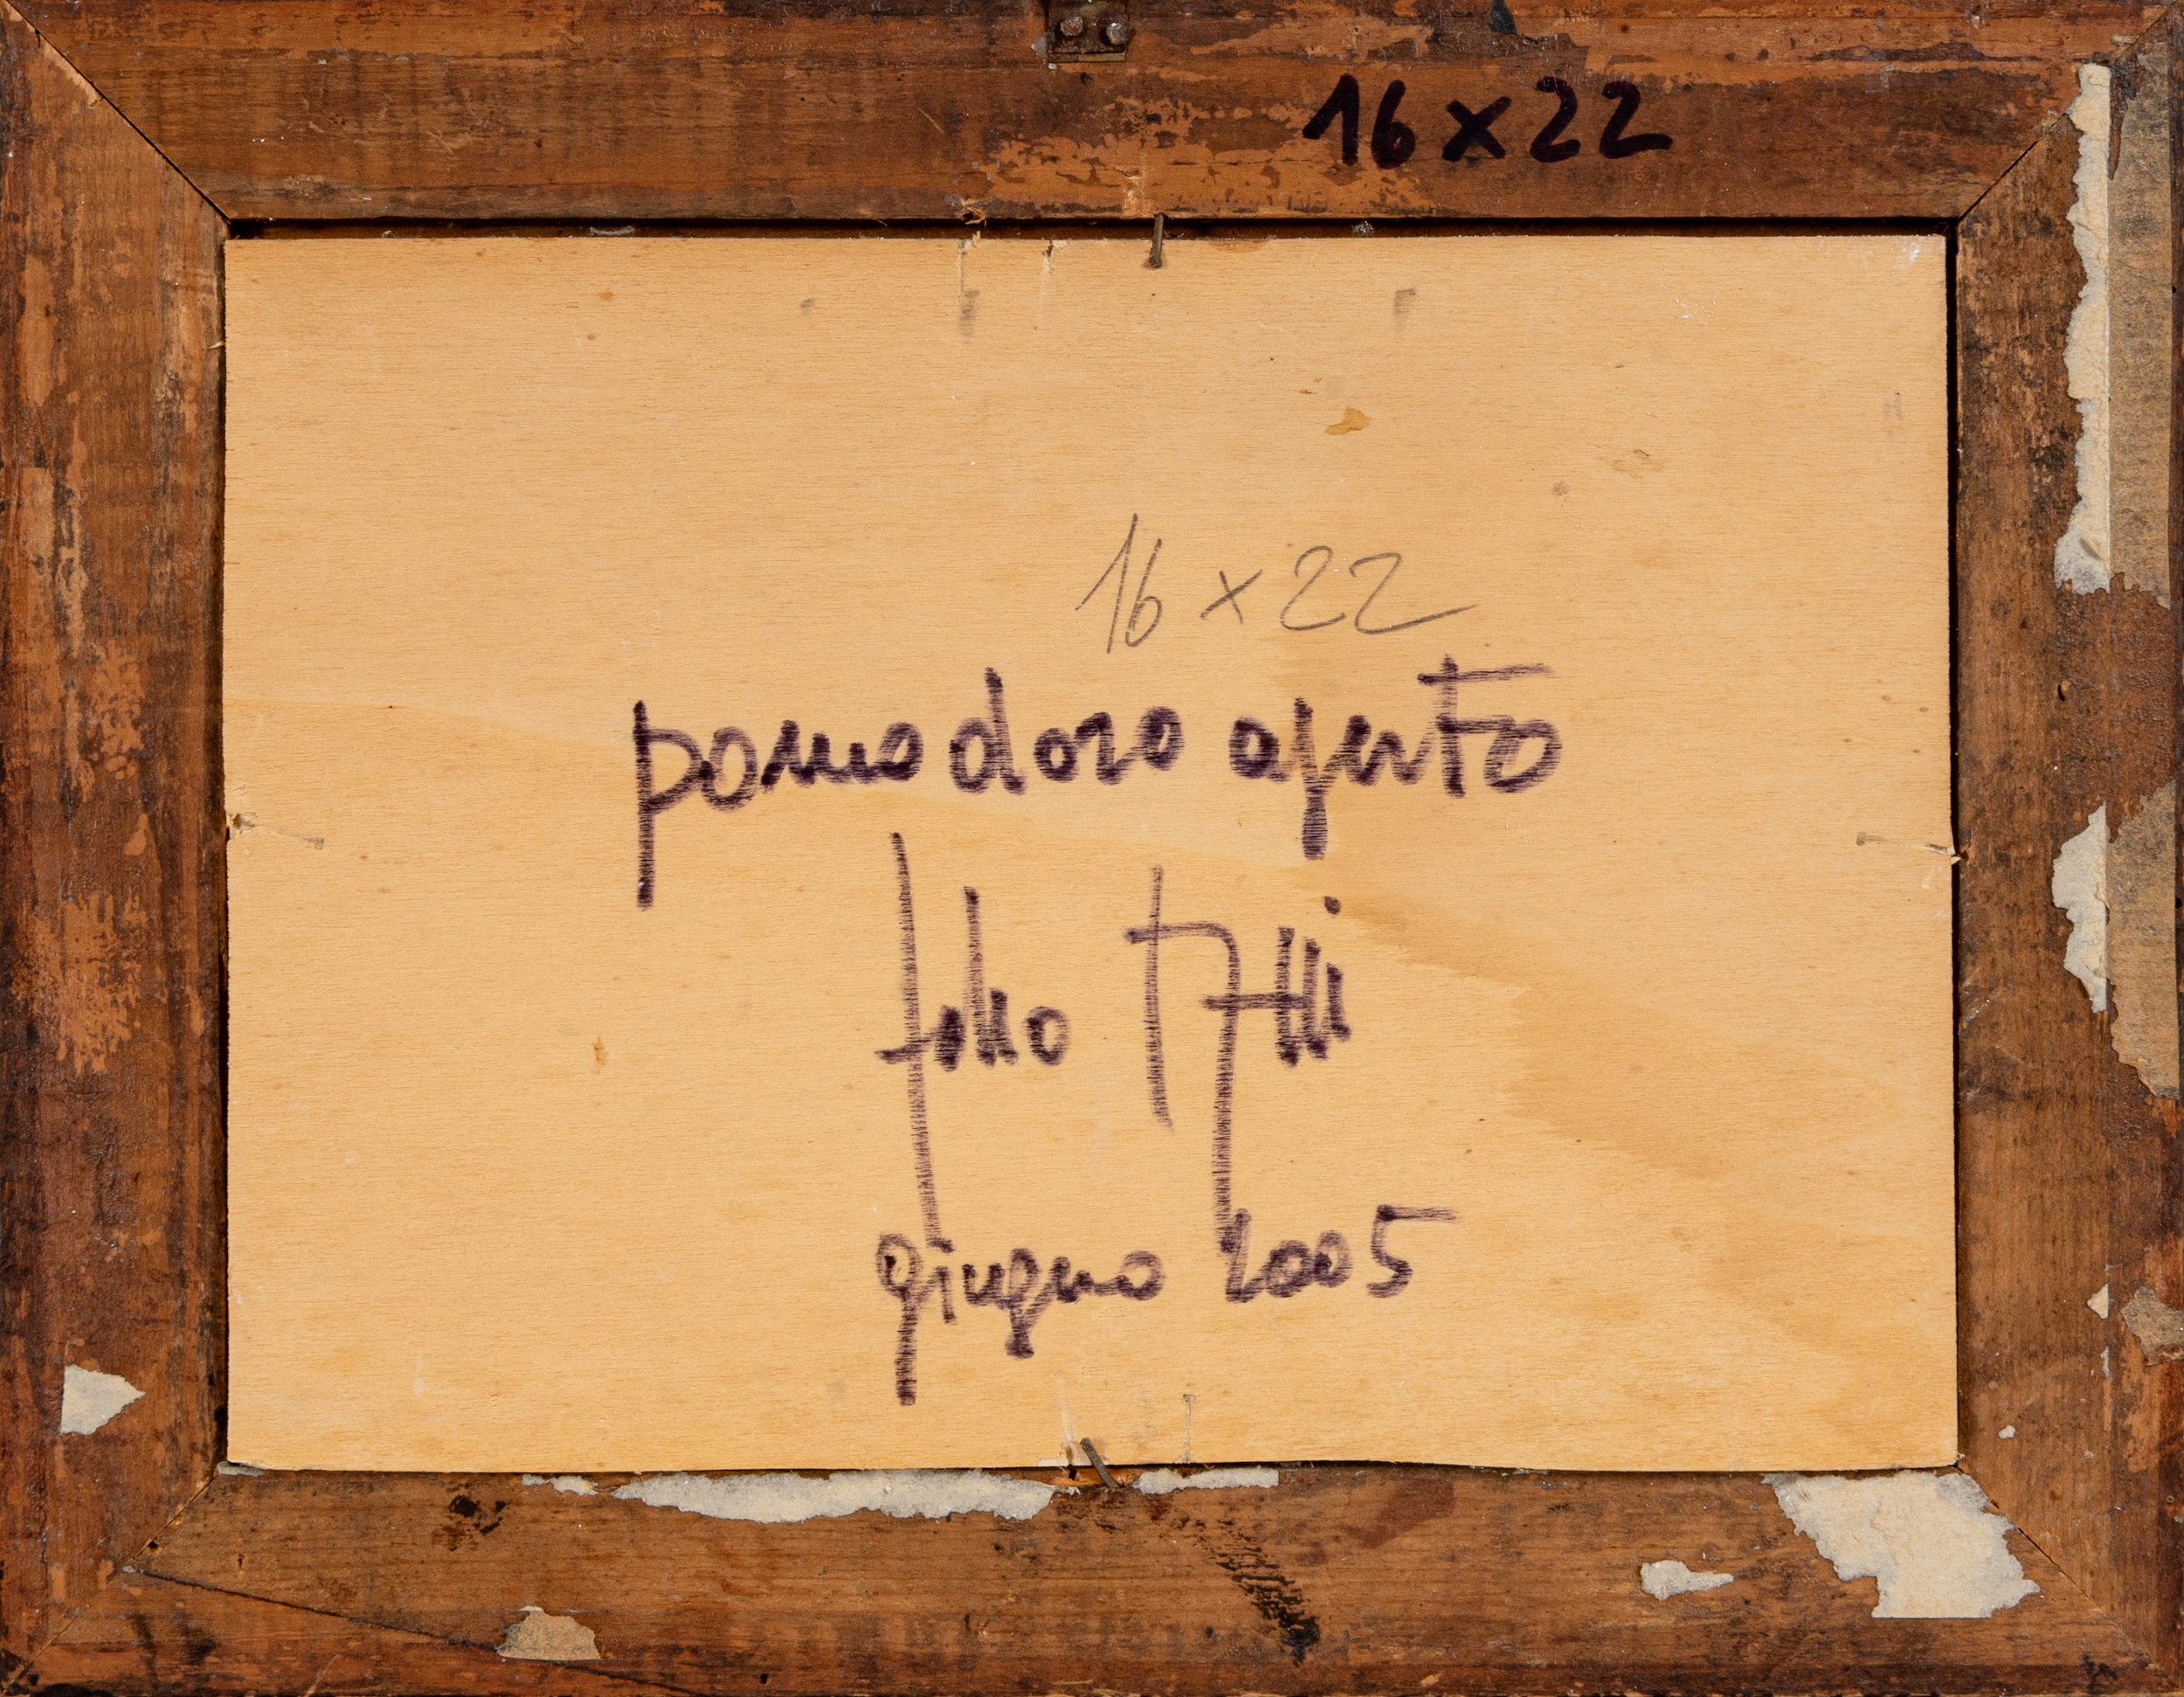 16x22
16x22
pomodoro aperto
giugno 2005